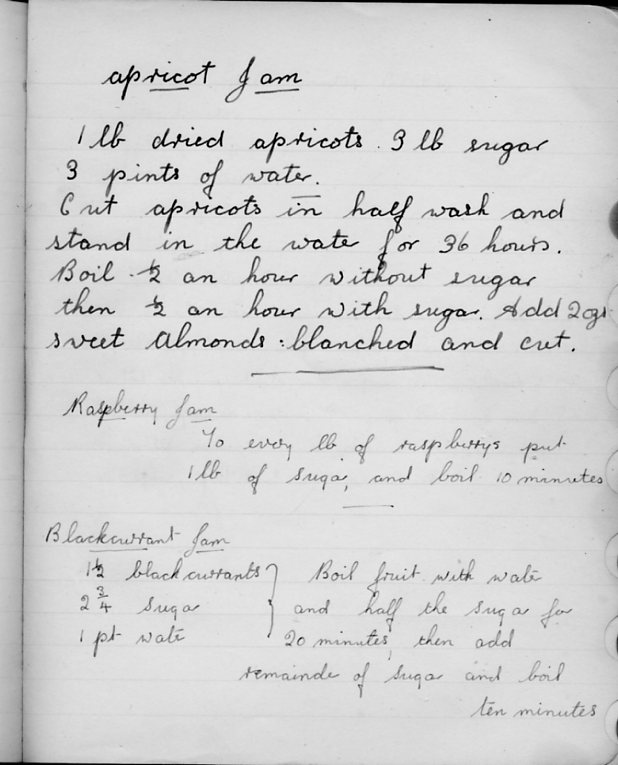 apricot Jam
1 lb dried apricots. 3 lb sugar
3 pints of water.
Cut apricots in half wash and
stand in the water for 36 hours.
Boil ½ an hour without sugar
then ½ an hour with sugar. Add 2ozs
sweet almonds : blanched and cut.
Raspberry Jam
To every lb of raspberrys put
1 lb of suga, and boil 10 minutes
Blackcurrant Jam
1½ blackcurrants } Boil fruit with wate
2 ¾ suga } and half the suga for
1 pt wate } 20 minutes, then add
remainde of suga and boil
ten minutes